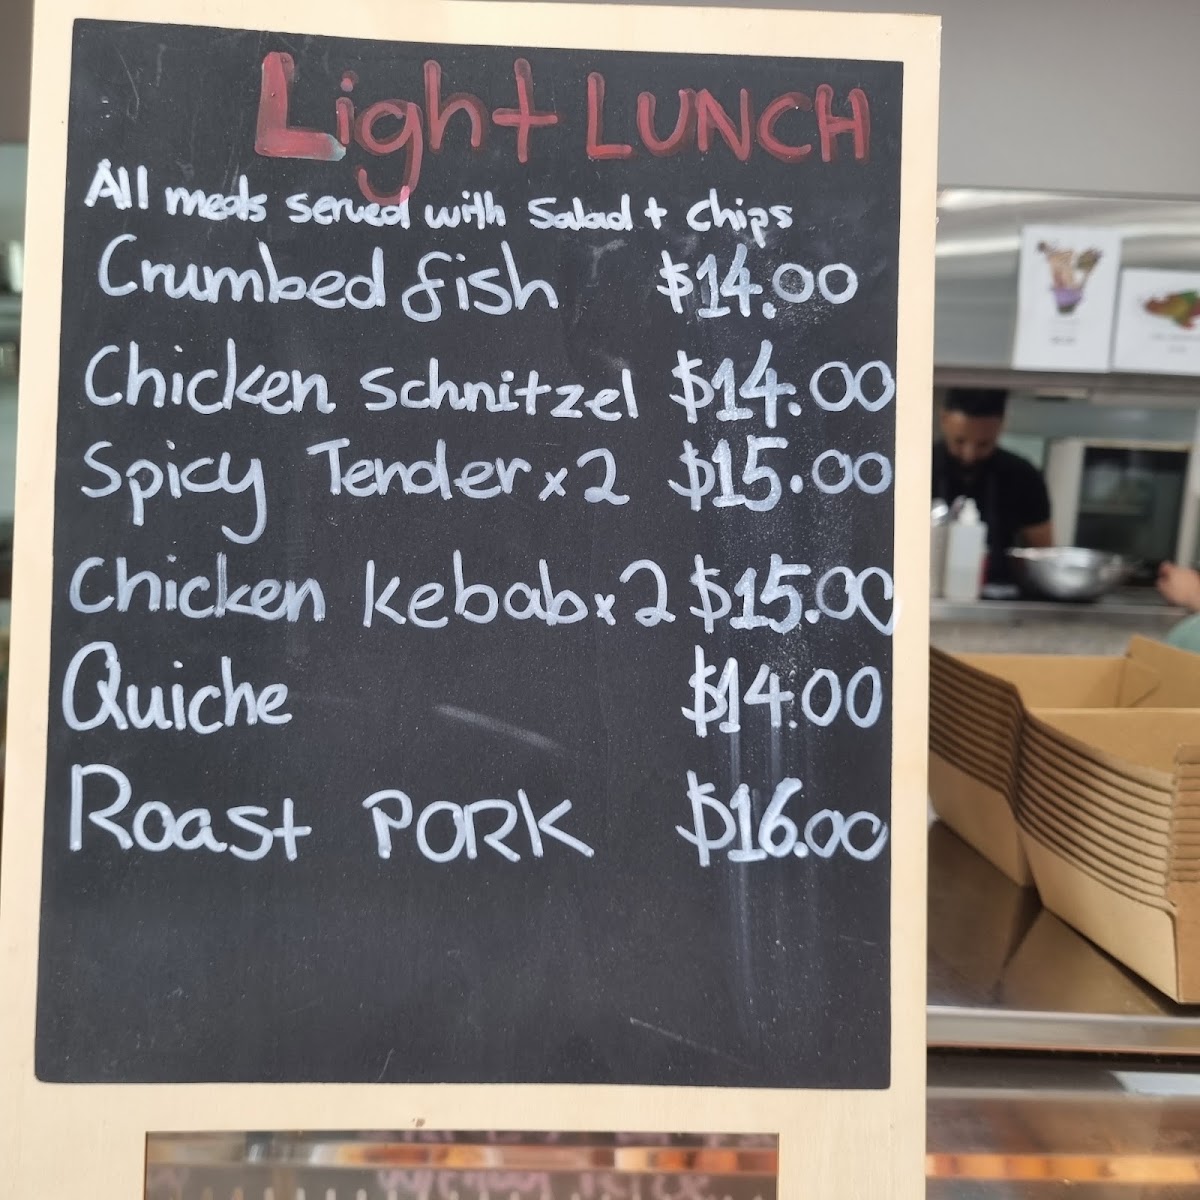 Light LUNCH
All meals served with Salad + Chips
Crumbed fish $14.00
Chicken Schnitzel $14.00
Spicy Tender x 2 $15.00
Chicken kebab x 2 $15.00
Quiche $14.00
Roast PORK $16.00